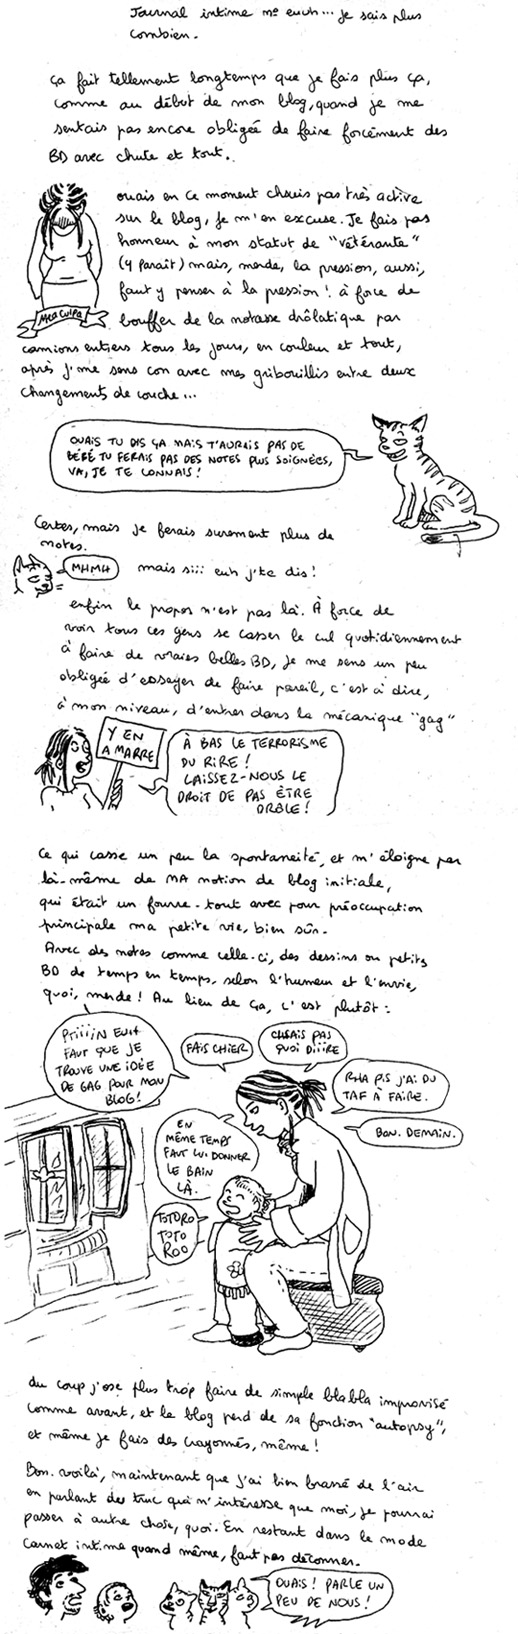 Journal intime n° euuh... je sais plus
combien.
ça fait tellement longtemps que je fais plus ça,
comme au début de mon blog, quand je me
sentais pas encore obligée de faire forcément des
BD avec chute et tout.
ouais en ce moment chuis pas très active
sur le blog, je m'en excuse. Je fais pas
honneur à mon statut de "vétérante"
(y paraît) mais, merde, la pression, aussi,
faut y penser à la pression! à force de
bouffer de la notasse drôlatique par
camions entiers tous les jours, en couleur et tout,
après j'me sens con avec mes gribouillis entre deux
changements de couche...
MEA CULPA
OUAIS TU DIS ÇA MAIS T'AURAIS PAS DE
BÉBÉ TU FERAIS PAS DES NOTES PLUS SOIGNÉES,
VA, JE TE CONNAIS!
Certes, mais je ferais surement plus de
notes.
MHMH
mais siii euh j'te dis!
enfin le propos n'est pas là. À force de
voir tous ces gens se casser le cul quotidiennement
à faire de vraies belles BD, je me sens un peu
obligée d'essayer de faire pareil, c'est à dire,
à mon niveau, d'entrer dans la mécanique "gag"
Y EN
A MARRE
À BAS LE TERRORISME
DU RIRE!
LAISSEZ-NOUS LE
DROIT DE PAS ÊTRE
DRÔLE!
Ce qui casse un peu la spontanéité, et m'éloigne par
là-même de MA notion de blog initiale,
qui était un fourre-tout avec pour préoccupation
principale ma petite vie, bien sûr.
Avec des notes comme celle-ci, des dessins ou petits
BD de temps en temps, selon l'humeur et l'envie,
quoi, merde! Au lieu de ça, c'est plutôt:
PTIIIIN EUH
FAUT QUE JE
TROUVE UNE IDÉE
DE GAG POUR MON
BLOG!
FAIS CHIER
CHSAIS PAS
QUOI DIIIRE
RHA PIS J'AI DU
TAF À FAIRE.
BON. DEMAIN.
EN
MÊME TEMPS
FAUT LUI DONNER
LE BAIN
LÀ.
TOTORO
TOTO
ROO
du coup j'ose plus trop faire de simple blabla improvisé
comme avant, et le blog perd de sa fonction "autopsy",
et même je fais des crayonnés, même!
Bon. voilà, maintenant que j'ai bien brassé de l'air
en parlant de truc qui n'intéresse que moi, je pourrai
passer à autre chose, quoi. En restant dans le mode
carnet intime quand même, faut pas déconner.
OUAIS! PARLE UN
PEU DE NOUS!